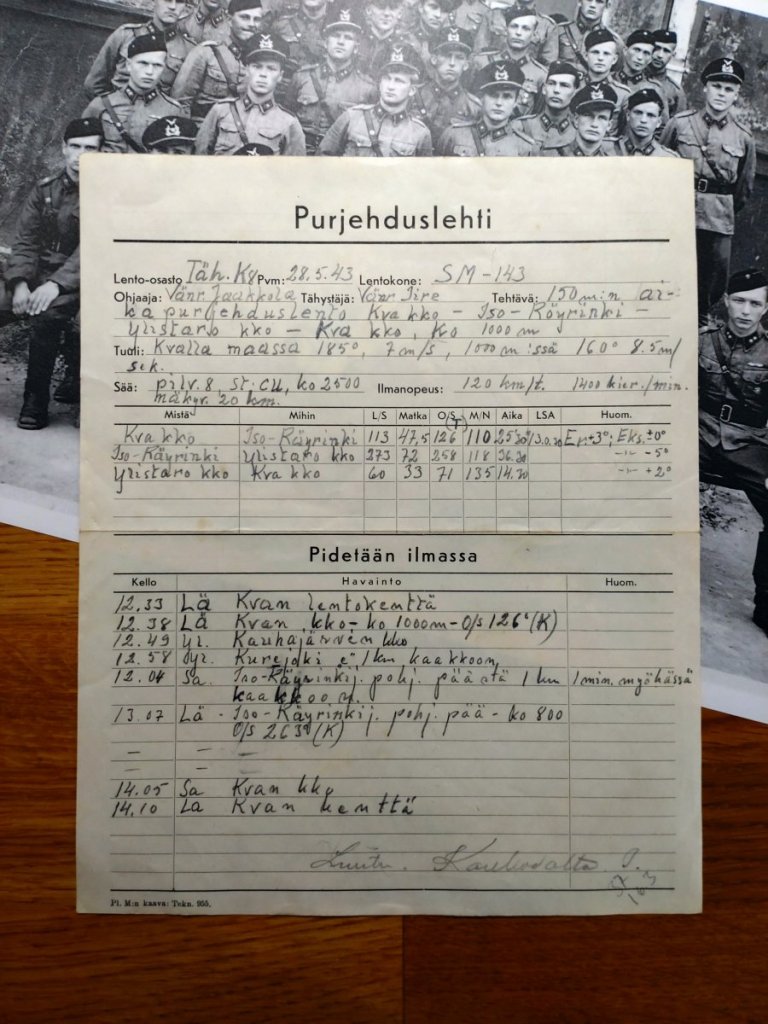 Purjehduslehti
Lento-osasto Täh. K8 Pvm: 28.5.43 Lentokone: SM-143
Ohjaaja: Vänr. Jaakkola Tähystäjä: Vänr. Tire Tehtävä: 150 min ai-
ka purjehduslento Kva kko - Iso-Räyrinki -
Ylistaro kko - Kva kko, ko 1000 m
Tuuli: Kvalla maassa 185°, 7 m/s, 1000 m:ssä 160° 8.5 m/
sek.
Sää: pilv. 8, st: cu, ko 2500 Ilmanopeus: 120 km/t. 1400 kier./min.
näkyv. 20 km.
Mistä Mihin L/S Matka O/S (T) M/N Aika LSA Huom.
Kva kko Iso-Räyrinki 113 47,5 126 110 25.30 13.0.30 Er. +3°; Eks. ±0°
Iso-Räyrinki Ylistaro kko 273 72 258 118 36.30 -"- -5°
Ylistaro kko Kva kko 60 33 71 135 14.30 -"- +2°
Pidetään ilmassa
Kello Havainto Huom.
12.33 Lä Kvan lentokenttä
12.38 Lä Kvan kko - ko 1000m - O/S 126° (K)
12.49 Yl. Kauhajärven kko
12.58 Syr. Kurejoki e" 1 km kaakkoon
12.04 Sa. Iso-Räyrinkij. pohj. päästä 1 km 1 min. myöhässä
kaakkoon.
13.07 Lä - Iso-Räyrinkij. pohj. pää - ko 800
O/S 263° (K)
— — —
— — —
14.05 Sa Kvan kko
14.10 La Kvan kenttä
Pl. M:n kaava: Tekn. 955.